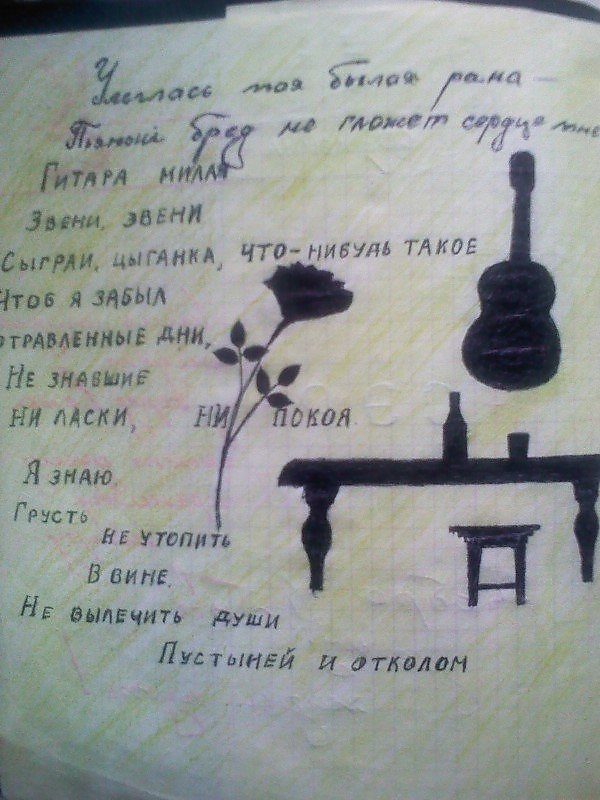 Улеглась моя былая рана —
Пьяный бред не гложет сердце мне
ГИТАРА МИЛАЯ
ЗВЕНИ, ЗВЕНИ
СЫГРАЙ, ЦЫГАНКА, ЧТО-НИБУДЬ ТАКОЕ
ЧТОБ Я ЗАБЫЛ
ОТРАВЛЕННЫЕ ДНИ,
НЕ ЗНАВШИЕ
НИ ЛАСКИ, НИ ПОКОЯ.
Я ЗНАЮ.
ГРУСТЬ
НЕ УТОПИТЬ
В ВИНЕ.
НЕ ВЫЛЕЧИТЬ ДУШИ
ПУСТЫНЕЙ И ОТКОЛОМ